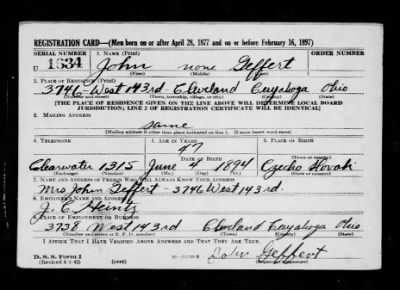 REGISTRATION CARD—(Men born on or after April 28, 1877 and on or before February 16, 1897)
SERIAL NUMBER 1. NAME (Print) ORDER NUMBER
U 1634 John none Geffert
(First) (Middle) (Last)
2. PLACE OF RESIDENCE (Print)
3746 - West 143rd - Cleveland Cuyahoga Ohio
(Number and street) (Town, township, village, or city) (County) (State)
[THE PLACE OF RESIDENCE GIVEN ON THE LINE ABOVE WILL DETERMINE LOCAL BOARD
JURISDICTION; LINE 2 OF REGISTRATION CERTIFICATE WILL BE IDENTICAL]
3. MAILING ADDRESS
same
[Mailing address if other than place indicated on line 2. If same insert word same]
4. TELEPHONE 5. AGE IN YEARS 6. PLACE OF BIRTH
47
DATE OF BIRTH
Clearwater 1315 June 4 1894 Czecho Slovak
(Exchange) (Number) (Mo.) (Day) (Yr.) (State or country)
7. NAME AND ADDRESS OF PERSON WHO WILL ALWAYS KNOW YOUR ADDRESS
Mrs John Geffert - 3746 West 143rd.
8. EMPLOYER'S NAME AND ADDRESS
J. C. Heintz
9. PLACE OF EMPLOYMENT OR BUSINESS
3738 West 143rd Cleveland Cuyahoga Ohio
(Number and street or R. F. D. number) (Town) (County) (State)
I AFFIRM THAT I HAVE VERIFIED ABOVE ANSWERS AND THAT THEY ARE TRUE.
D. S. S. Form 1
(Revised 4-1-42) (over) John Geffert